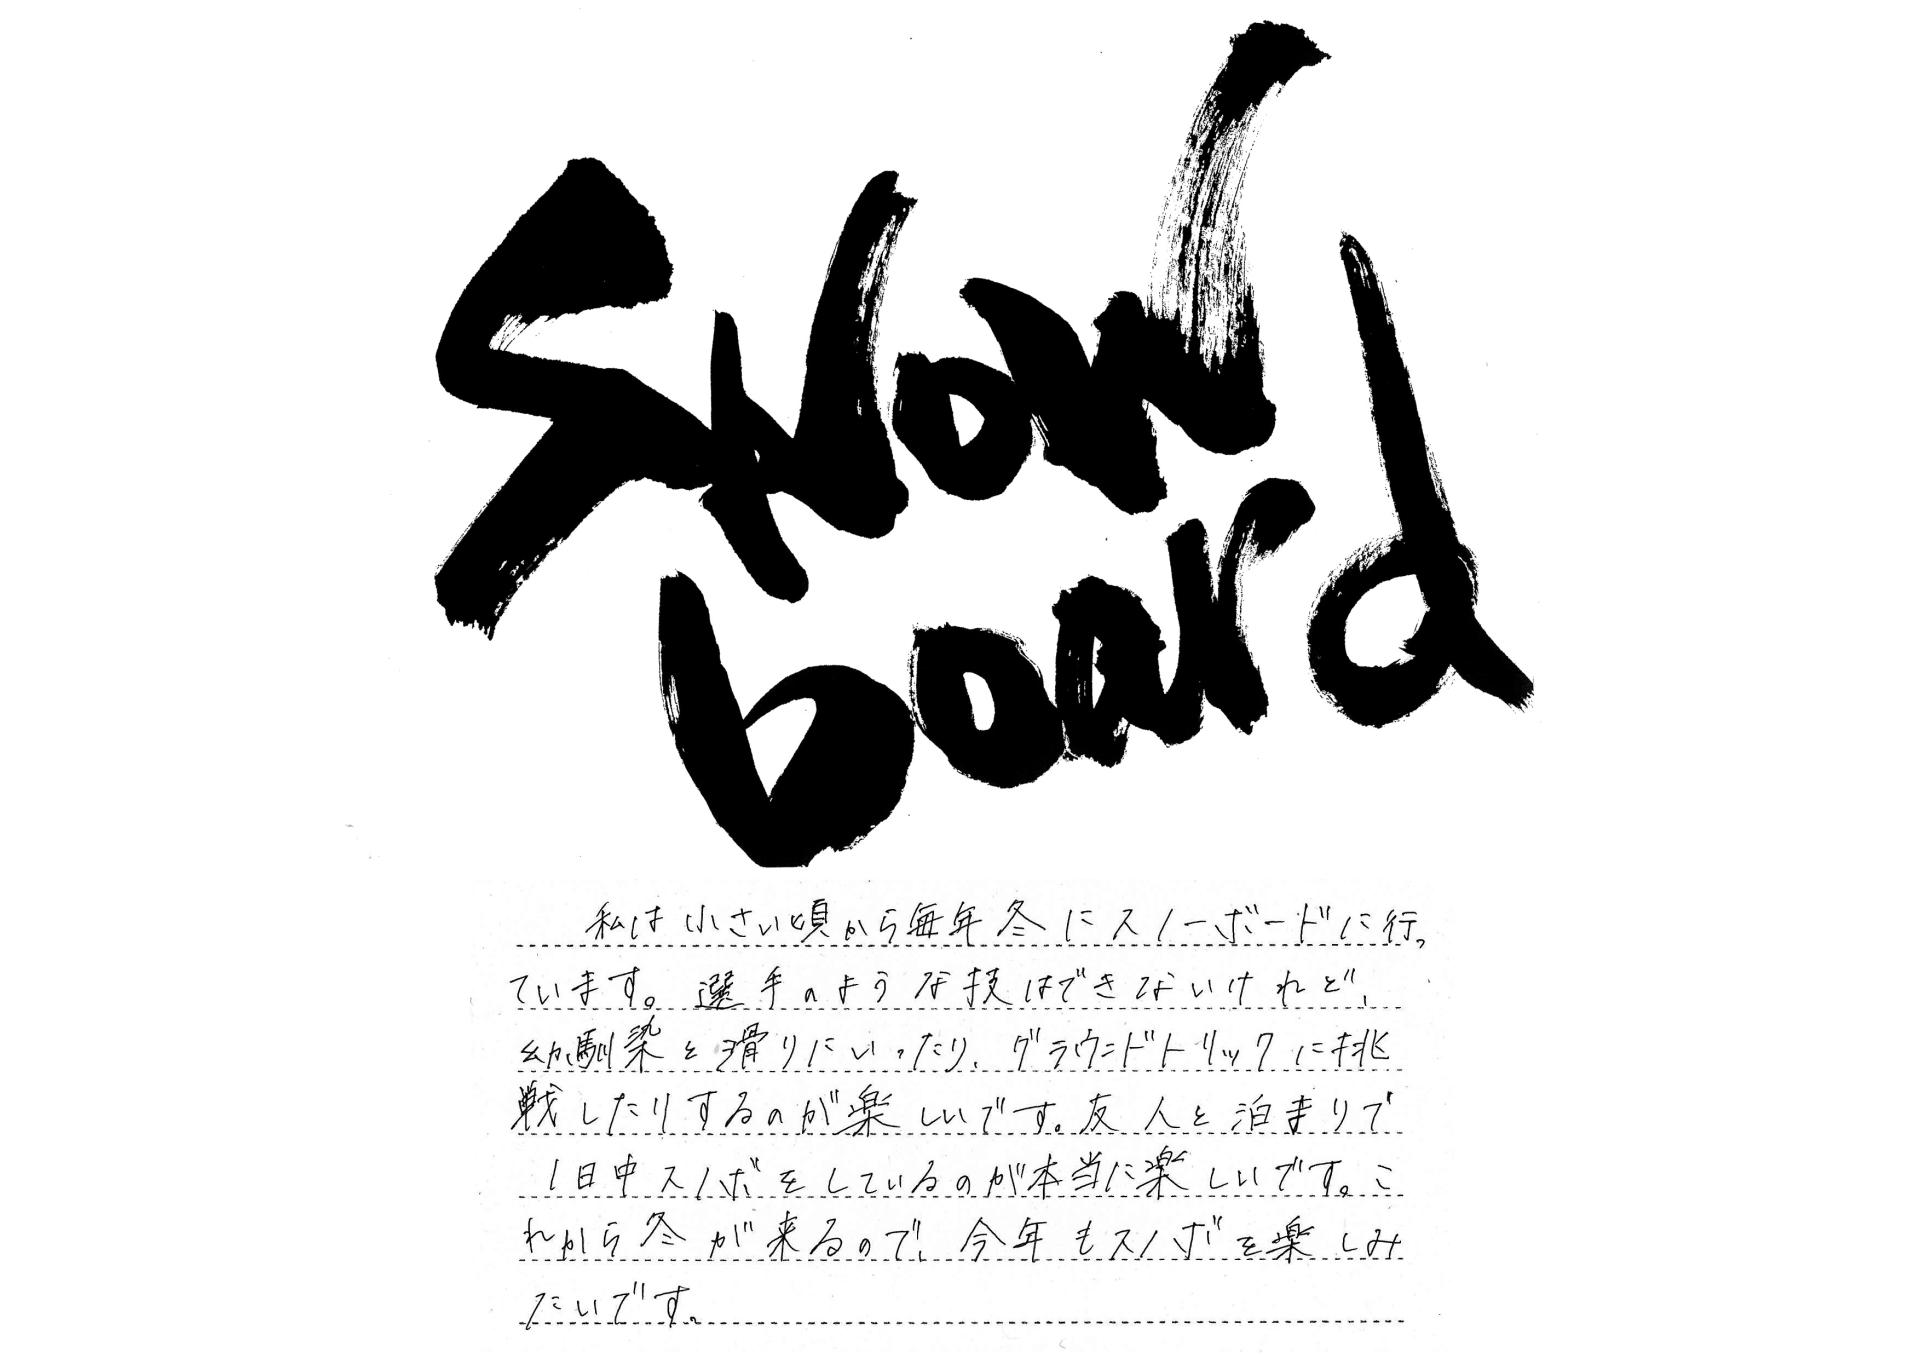 Snow
board
私は小さい頃から毎年冬にスノーボードに行っ
ています。選手のような技はできないけれど、
幼馴染と滑りにいったり、グラウンドトリックに挑
戦したりするのが楽しいです。友人と泊まりで
1日中スノボをしているのが本当に楽しいです。こ
れから冬が来るので、今年もスノボを楽しみ
たいです。